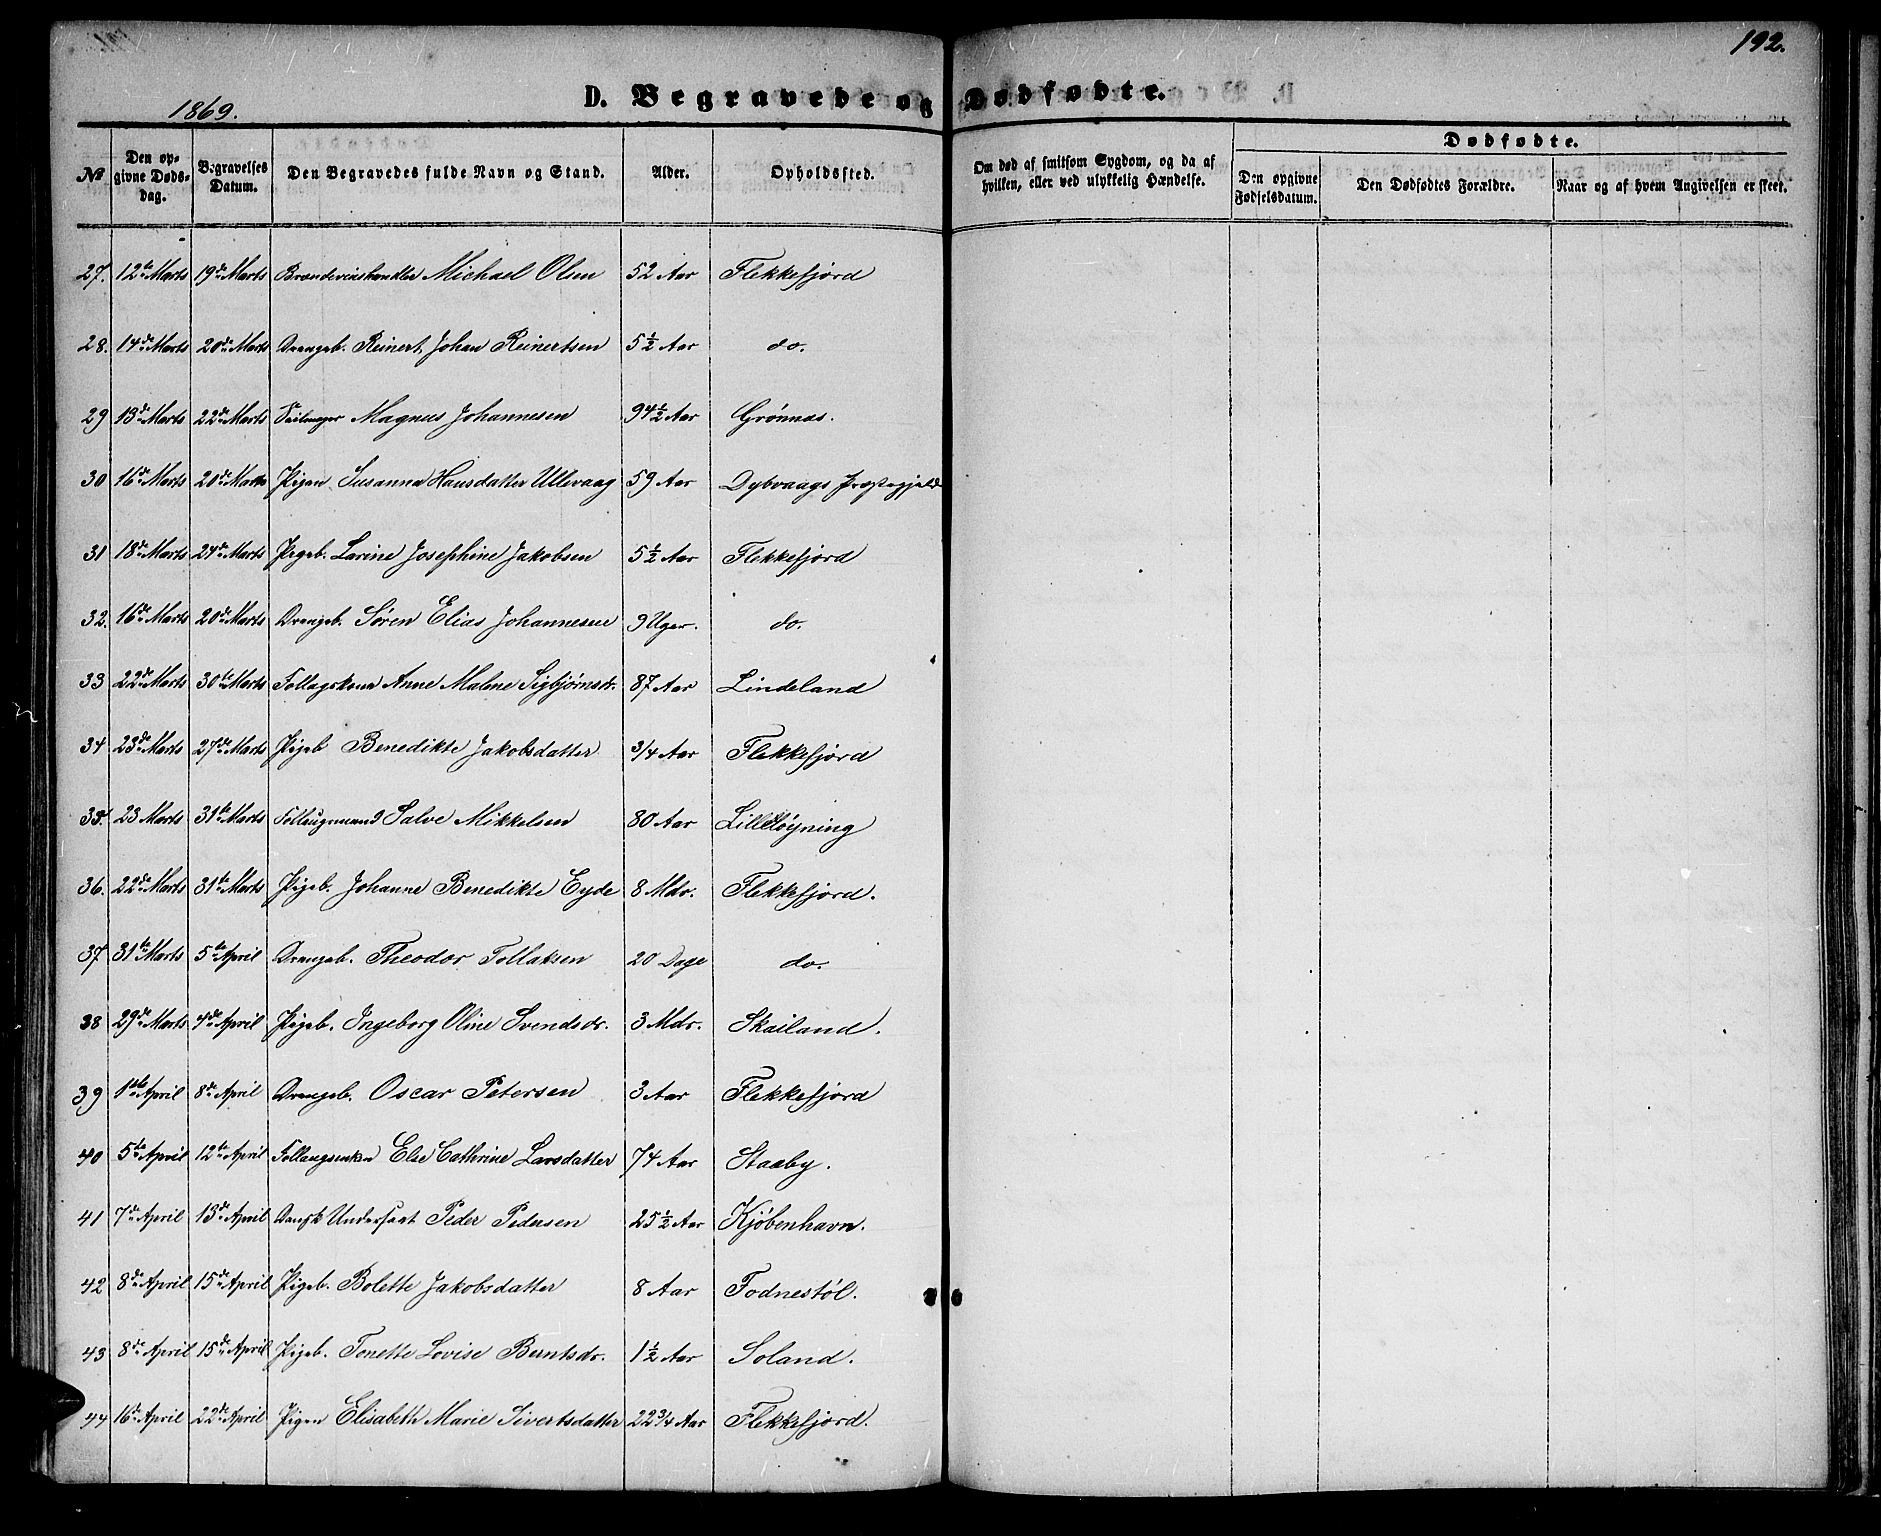 192.
1869.
D. Begravede og Dødfødte.
№
Den opgivne Dødsdag.
Begravelses Datum.
Den Begravedes fulde Navn og Stand.
Alder.
Opholdssted.
Om død af smitsom Sygdom, og da af hvilken, eller ved ulykkelig Hændelse.
Dødfødte.
Den opgivne Fødselsdatum.
Den Dødfødtes Forældre.
Naar og af hvem Angivelsen er skeet.
27. 12te Marts 19de Marts Brændeviinshandler Michael Olsen 52 Aar Flekkefjord
28. 14de Marts 20de Marts Drengeb. Reinert Johan Reinertsen 5½ Aar do.
29 13de Marts 22de Marts Magnus Johannesen 94½ Aar Grønnes.
30 16de Marts 20de Marts Pigen Susanna Hansdatter Ullevaag 59 Aar Dybvaags Præstegjeld
31 18de Marts 24de Marts Pigeb. Larine Josephine Jakobsen 5½ Aar Flekkefjord
32. 16de Marts 20de Marts Drengeb. Søren Elias Johannesen 9 Uger. do.
33 22de Marts 30te Marts Follagskone Anne Malene Sigbjørnsdr. 87 Aar Lindeland
34 23de Marts 27de Marts Pigeb Benedikte Jakobsdatter 3/4 Aar Flekkefjord
35. 23 Marts 31te Marts Follaugsmand Salve Mikkelsen 80 Aar Lilleløyning
36. 22de Marts 31te Marts Pigeb. Johanne Benedikte Eyde 8 Mdr. Flekkefjord.
37 31te Marts 5te April Drengeb. Theodor Tollaksen 20 Dage do.
38 29de Marts 4de April Pigeb. Ingeborg Oline Svendsdr. 3 Mdr. Skailand.
39 1ste April 8de April Drengeb. Oscar Petersen 3 Aar Flekkefjord
40 5te April 12te April Follaugsenken Else Cathrine Larsdatter 74 Aar Staaby.
41 7de April 13de April Dansk Undersaat Peder Pedersen 25½ Aar Kjøbenhavn.
42 8de April 15de April Pigeb. Bolette Jakobsdatter 8 Aar Fodnestøl.
43 8de April 15de April Pigeb. Tonette Lovise Berntsdr. 1½ Aar Soland.
44 16de April 22de April Pigen Elisabeth Marie Sivertsdatter 22 3/4 Aar Flekkefjord.